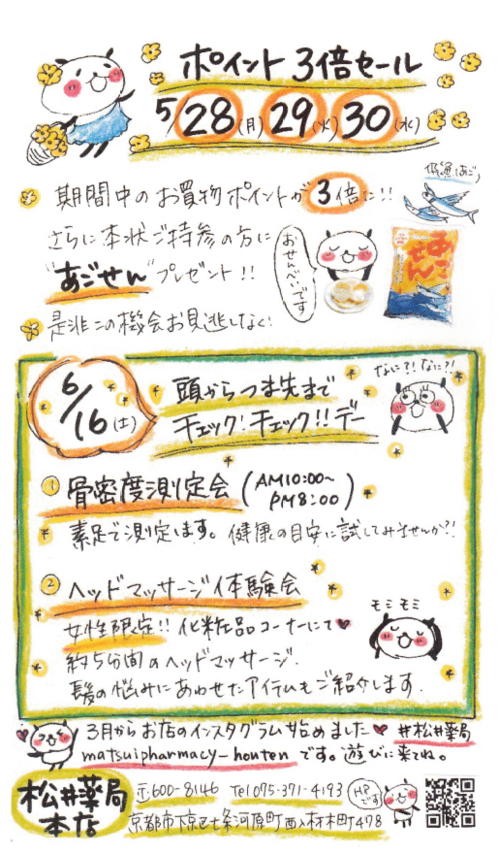 ポイント3倍セール
5/28(月)29(火)30(水)
期間中のお買物ポイントが3倍に!!
飛魚(あご)
さらに本状ご持参の方に
"あごせん"プレゼント!!
おせんべいです
あごせん
是非この機会お見逃しなく!
6/16(土)
頭からつま先まで
チェック!チェック!!デー
なに?!なに?!
① 骨密度測定会(AM10:00~
PM8:00)
素足で測定します。健康の目安に試してみませんか?!
② ヘッドマッサージ体験会
女性限定!!化粧品コーナーにて♥
約5分間のヘッドマッサージ.
髪の悩みにあわせたアイテムもご紹介します.
モミモミ
3月からお店のインスタグラム始めました♥ #松井薬局
matsuipharmacy-honten です。遊びに来てね。
松井薬局
本店
〒600-8146 Tel 075-371-4193
HPです
京都市下京区七条河原町西入材木町478